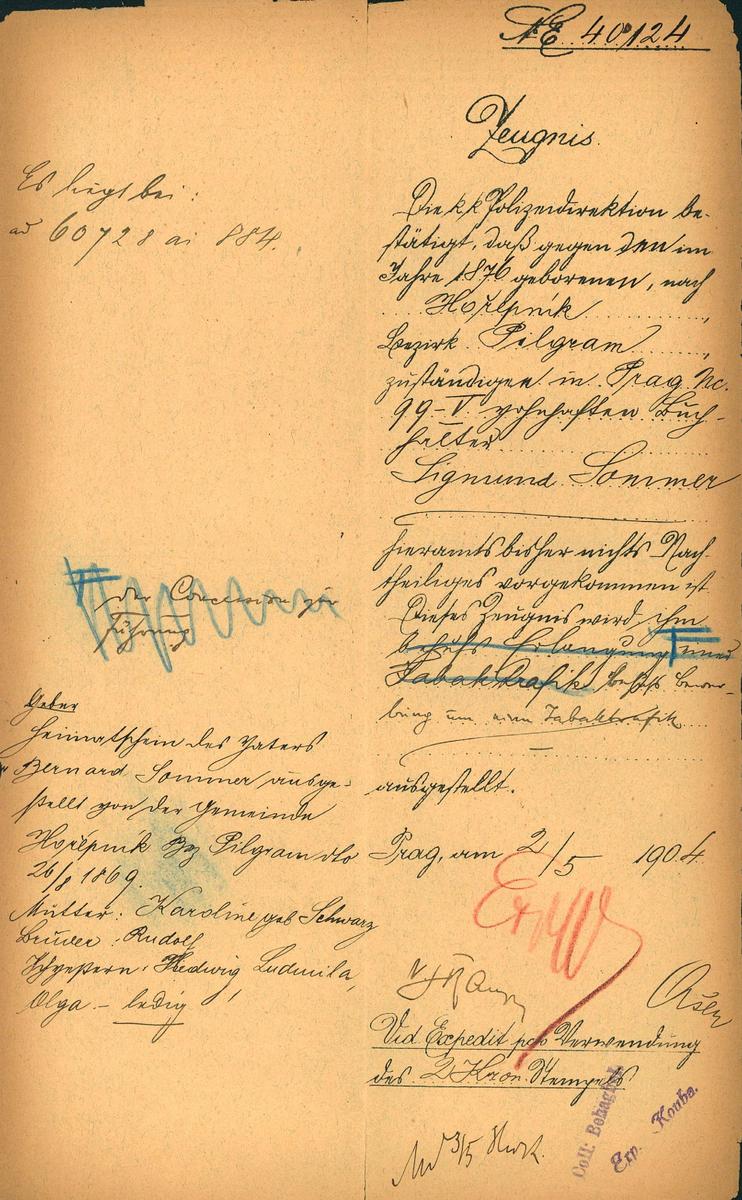 Es liegt bei:
ad 60728 ai 884.
der Concession zur
Führung
Heimatschein des Vaters
Bernard Sommer ausge-
stellt von der Gemeinde
Hořepnik Bz Pilgram dto
26/8 1869.
Mutter: Karoline geb Schwarz
Bruder: Rudolf
Schwestern: Hedwig, Ludmila,
Olga – ledig
NE 40124
Zeugnis.
Die k.k. Polizeidirektion be-
stätigt, daß gegen den im
Jahre 1876 geborenen, nach
Hořepnik,
Bezirk Pilgram,
zuständigen in Prag Nc.
99-V wohnhaften Buch-
halter
Sigmund Sommer
hieramts bisher nichts Nach-
theiliges vorgekommen ist.
Dieses Zeugnis wird ihm
behufs Erlangung einer
Tabaktrafik behufs Bewer-
bung um eine Tabaktrafik
ausgestellt.
Prag, am 2/5 1904.
Vid. Expedit pto Verwendung
des 2 Kron. Stempels
3/5
Coll: Bohaglia
Exp. Kouba.